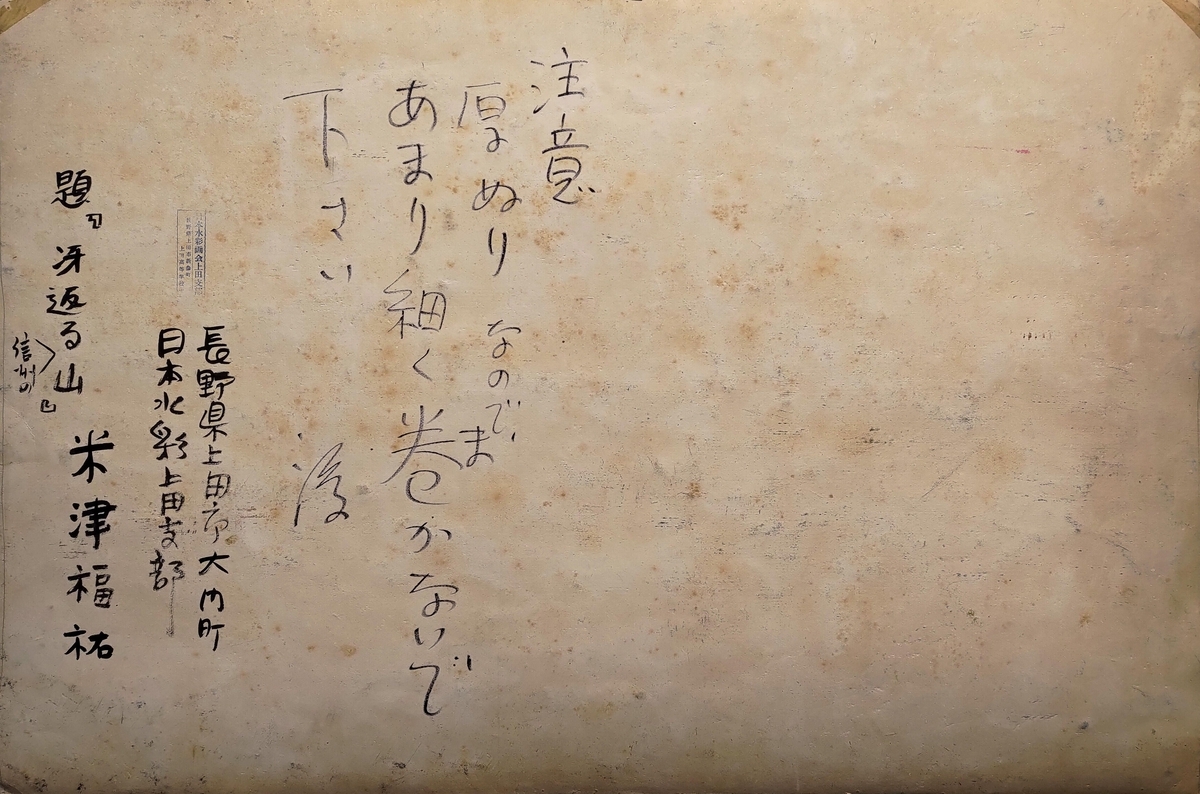 注意
厚ぬりなのでま
あまり細く巻かないで
下さい
日本水彩画会上田支部
長野県上田市大門町
日本水彩上田支部
米津福祐
題「冴返る山」
信州の